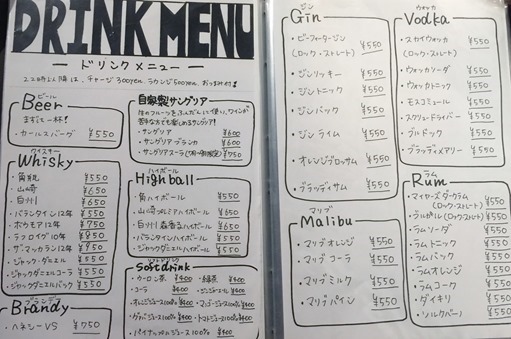 DRINK MENU
ードリンクメニューー
Beer
ビール
まずは一杯!
・カールスバーグ ¥550
ウイスキー
Whisky
・角瓶 ¥550
・山崎 ¥650
・白州 ¥650
・バランタイン12年 ¥550
・ボウモア12年 ¥750
・ラフロイグ10年 ¥850
・ザ・マッカラン12年 ¥950
・ジャック・ダニエル ¥550
・ジャックダニエルコーラ ¥550
・ジャックダニエルバック ¥550
ブランデー
Brandy
・ヘネシーVS ¥750
自家製サングリア
・サングリア ¥600
・サングリアブランカ ¥600
ハイボール
Highball
・角ハイボール ¥550
・山崎プレミアハイボール ¥650
・白州森香るハイボール ¥650
・バランタインハイボール ¥550
・ジャックダニエルハイボール ¥550
ソフトドリンク
Softdrink
・ウーロン茶 ¥400 ・緑茶 ¥400
・コーラ ¥400 ・ジンジャエール ¥400
・オレンジジュース100% ¥400 ・マンゴージュース100% ¥400
・グァバジュース100% ¥400 ・トマトジュース100% ¥400
・パイナップルジュース100% ¥400
ジン
Gin
・ビーフィータージン
(ロック・ストレート) ¥550
・ジンリッキー ¥550
・ジントニック ¥550
・ジンバック ¥550
・ジンライム ¥550
・オレンジブロッサム ¥550
・ブラッディサム ¥550
マリブ
Malibu
・マリブオレンジ ¥550
・マリブコーラ ¥550
・マリブミルク ¥550
・マリブパイン ¥550
ウォッカ
Vodka
・スカイウォッカ
(ロック・ストレート) ¥550
・ウォッカソーダ ¥550
・ウォッカトニック ¥550
・モスコミュール ¥550
・スクリュードライバー ¥550
・ブルドック ¥550
・ブラッディメアリー ¥550
ラム
Rum
・マイヤーズダークラム
(ロック・ストレート) ¥550
・ラムソーダ ¥550
・ラムトニック ¥550
・ラムバック ¥550
・ラムオレンジ ¥550
・ラムコーク ¥550
・ダイキリ ¥550
・ソルクバーノ ¥550